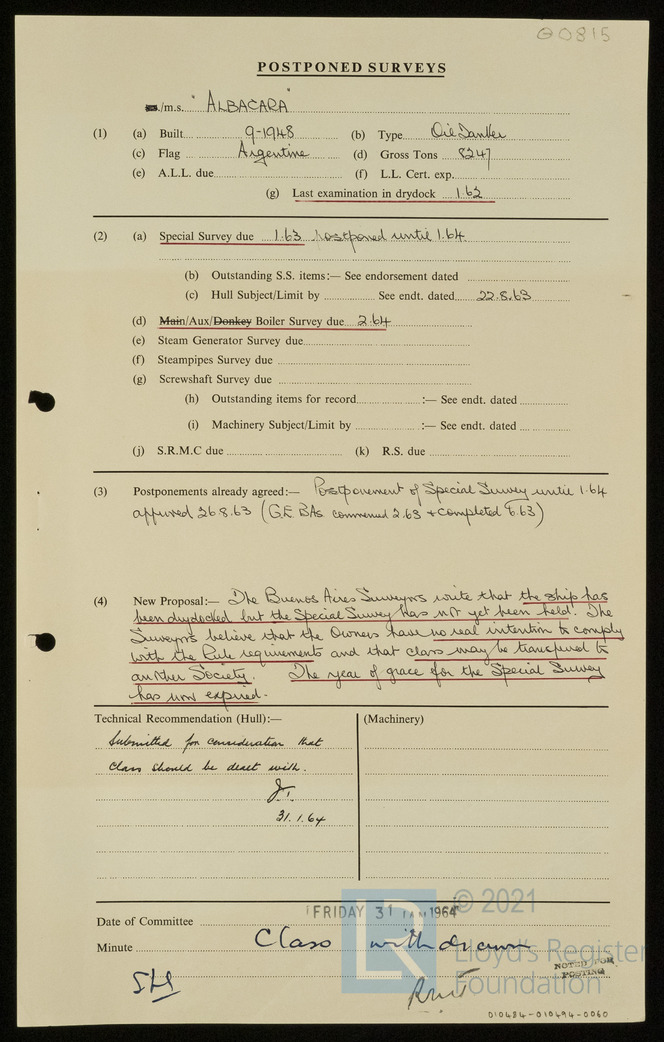 G0815
POSTPONED SURVEYS
/m.s. "ALBACARA"
(1) (a) Built 9-1948 (b) Type Oil Tanker
(c) Flag Argentine (d) Gross Tons 8247
(e) A.L.L. due (f) L.L. Cert. exp.
(g) Last examination in drydock 1.62
(2) (a) Special Survey due 1.63 postponed until 1.64
(b) Outstanding S.S. items:— See endorsement dated
(c) Hull Subject/Limit by See endt. dated 22.8.63
(d) Main/Aux/Donkey Boiler Survey due 2.64
(e) Steam Generator Survey due
(f) Steampipes Survey due
(g) Screwshaft Survey due
(h) Outstanding items for record :— See endt. dated
(i) Machinery Subject/Limit by :— See endt. dated
(j) S.R.M.C due (k) R.S. due
(3) Postponements already agreed:— Postponement of Special Survey until 1.64
approved 26.8.63 (G.E. BAs. commenced 2.63 + completed 6.63)
(4) New Proposal:— The Buenos Aires Surveyors write that the ship has
been drydocked but the Special Survey has not yet been held. The
Surveyors believe that the Owners have no real intention to comply
with the Rule requirements and that class may be transferred to
another Society. The year of grace for the Special Survey
has now expired.
Technical Recommendation (Hull):— (Machinery)
Submitted for consideration that
Class should be dealt with.
31.1.64
Date of Committee FRIDAY 31 JAN 1964
Minute Class withdrawn
NOTED FOR
POSTING
© 2021
LR
Lloyd's Register
Foundation
010484-010494-0060